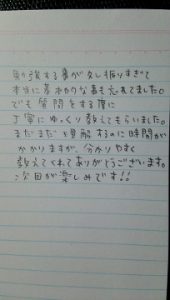 勉強する事が久し振りすぎて
本当に基本的な事も忘れてました。
でも質問をする度に
丁寧にゆっくり教えてもらいました。
まだまだ理解するのに時間が
かかりますが、分かりやすく
教えてくれてありがとうございます。
次回が楽しみです!!